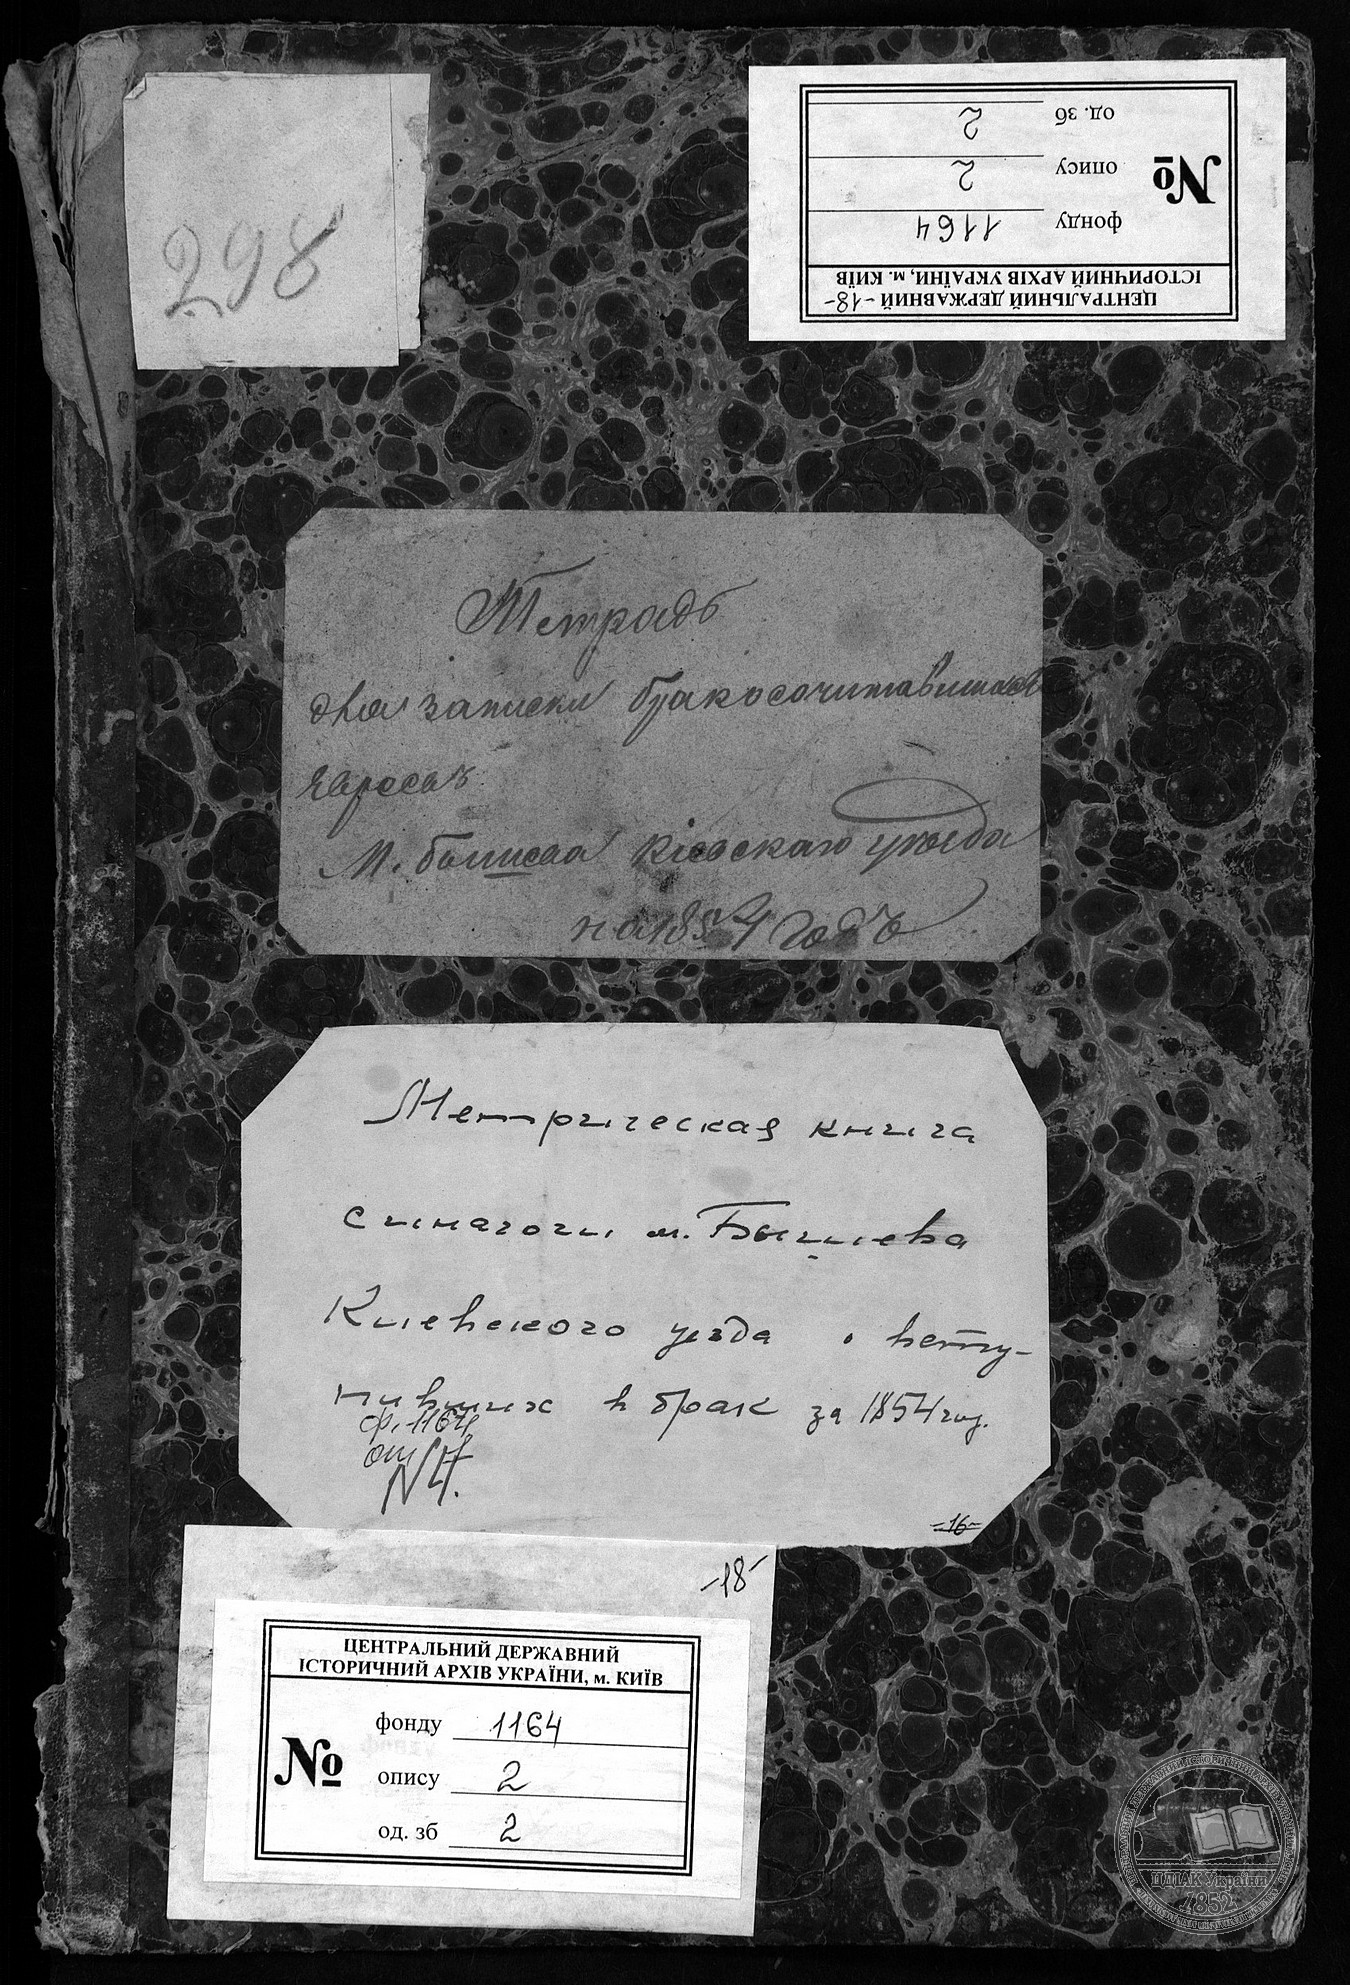 298
ЦЕНТРАЛЬНИЙ ДЕРЖАВНИЙ -18-
ІСТОРИЧНИЙ АРХІВ УКРАЇНИ, м. КИЇВ
№
фонду 1164
опису 2
од. зб 2
Тетрадь
для записки бракосочитавшихся
Евреевъ
М. Бышева Кіевскаго уезда
на 1854 годъ
Метрическая книга
синагоги м. Бышева
Киевского уезда о всту-
пивших в брак за 1854 год.
ф. 1164
оп
№
-16-
-18-
ЦЕНТРАЛЬНИЙ ДЕРЖАВНИЙ
ІСТОРИЧНИЙ АРХІВ УКРАЇНИ, м. КИЇВ
№
фонду 1164
опису 2
од. зб 2
ЦДІАК України
1852